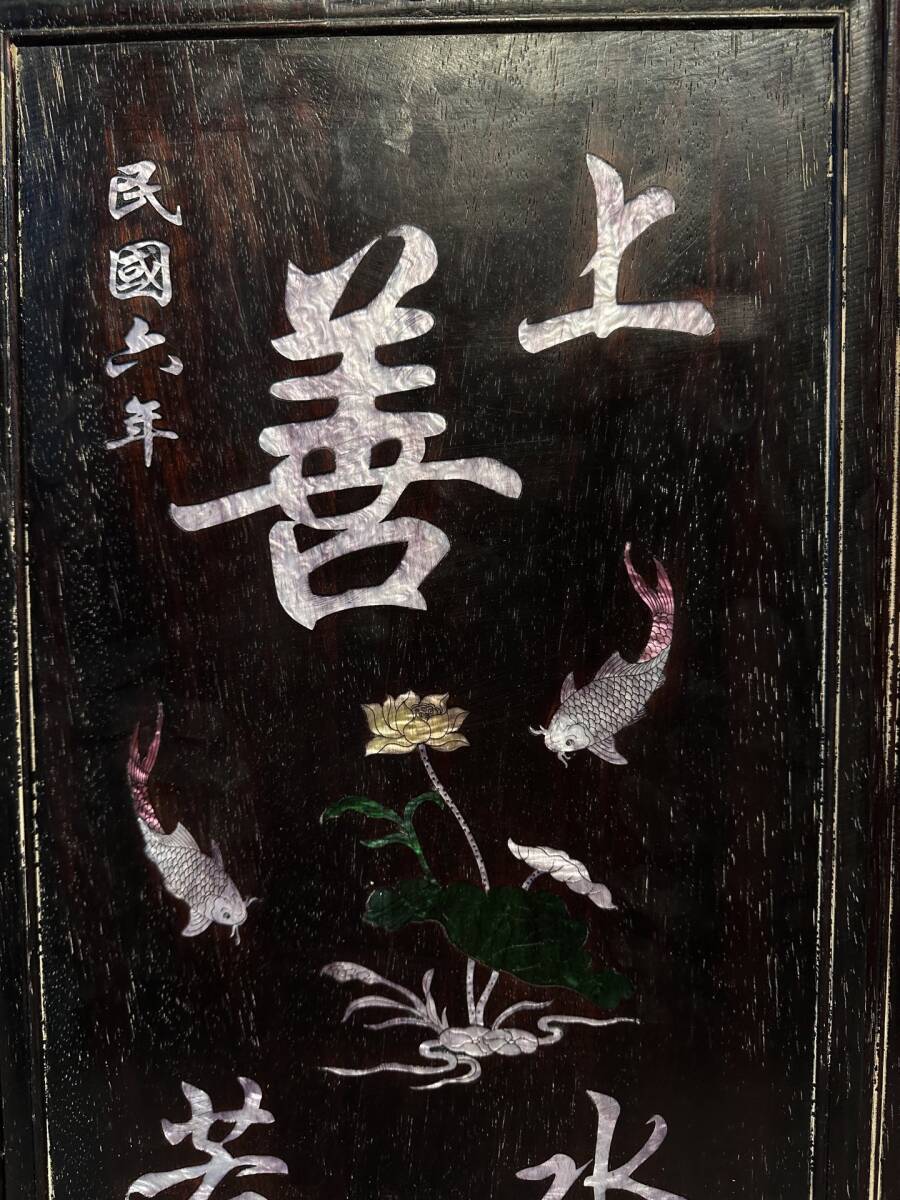 上善
若水
民國六年